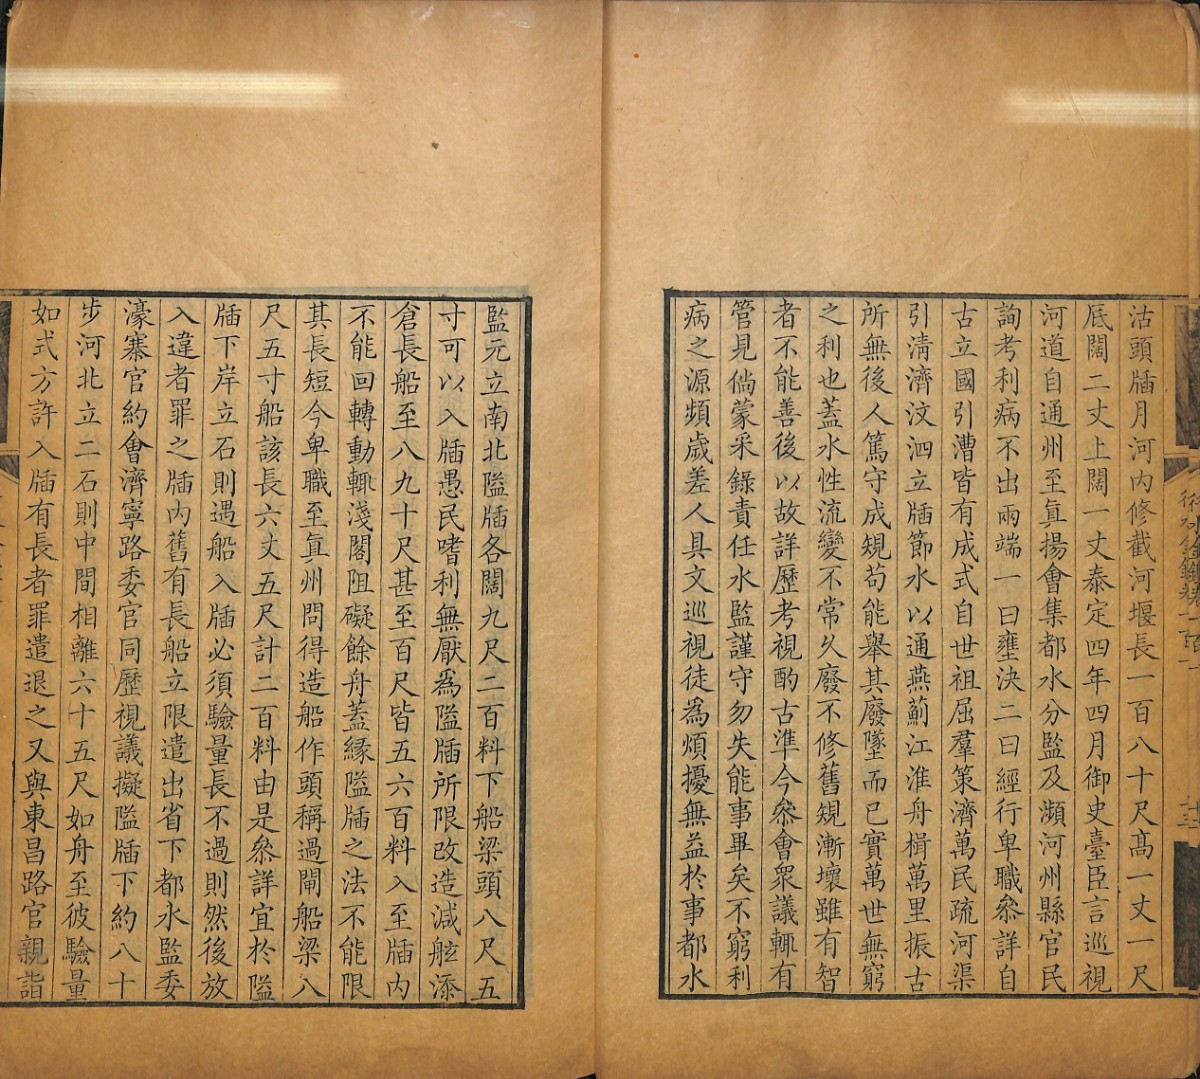 沽頭牐月河內修截河堰長一百八十尺高一丈一尺
底闊二丈上闊一丈泰定四年四月御史臺臣言巡視
河道自通州至眞揚會集都水分監及瀕河州縣官民
詢考利病不出兩端一曰壅決二曰經行卑職叅詳自
古立國引漕皆有成式自世祖屈羣策濟萬民疏河渠
引淸濟汶泗立牐節水以通燕薊江淮舟楫萬里振古
所無後人篤守成規苟能舉其廢墜而已實萬世無窮
之利也蓋水性流變不常久廢不修舊規漸壞雖有智
者不能善後以故詳歷考視酌古準今叅會眾議輒有
管見倘蒙采錄責任水監謹守勿失能事畢矣不窮利
病之源頻歲差人具文巡視徒為煩擾無益於事都水
監元立南北隘牐各闊九尺二百料下船梁頭八尺五
寸可以入牐愚民嗜利無厭為隘牐所限改造減舷添
倉長船至八九十尺甚至百尺皆五六百料入至牐內
不能回轉動輒淺閣阻礙餘舟蓋緣隘牐之法不能限
其長短今卑職至眞州問得造船作頭稱過閘船梁八
尺五寸船該長六丈五尺計二百料由是叅詳宜於隘
牐下岸立石則遇船入牐必須驗量長不過則然後放
入違者罪之牐內舊有長船立限遣出省下都水監委
濠寨官約會濟寧路委官同歷視議擬隘牐下約八十
步河北立二石則中間相離六十五尺如舟至彼驗量
如式方許入牐有長者罪遣退之又與東昌路官親詣